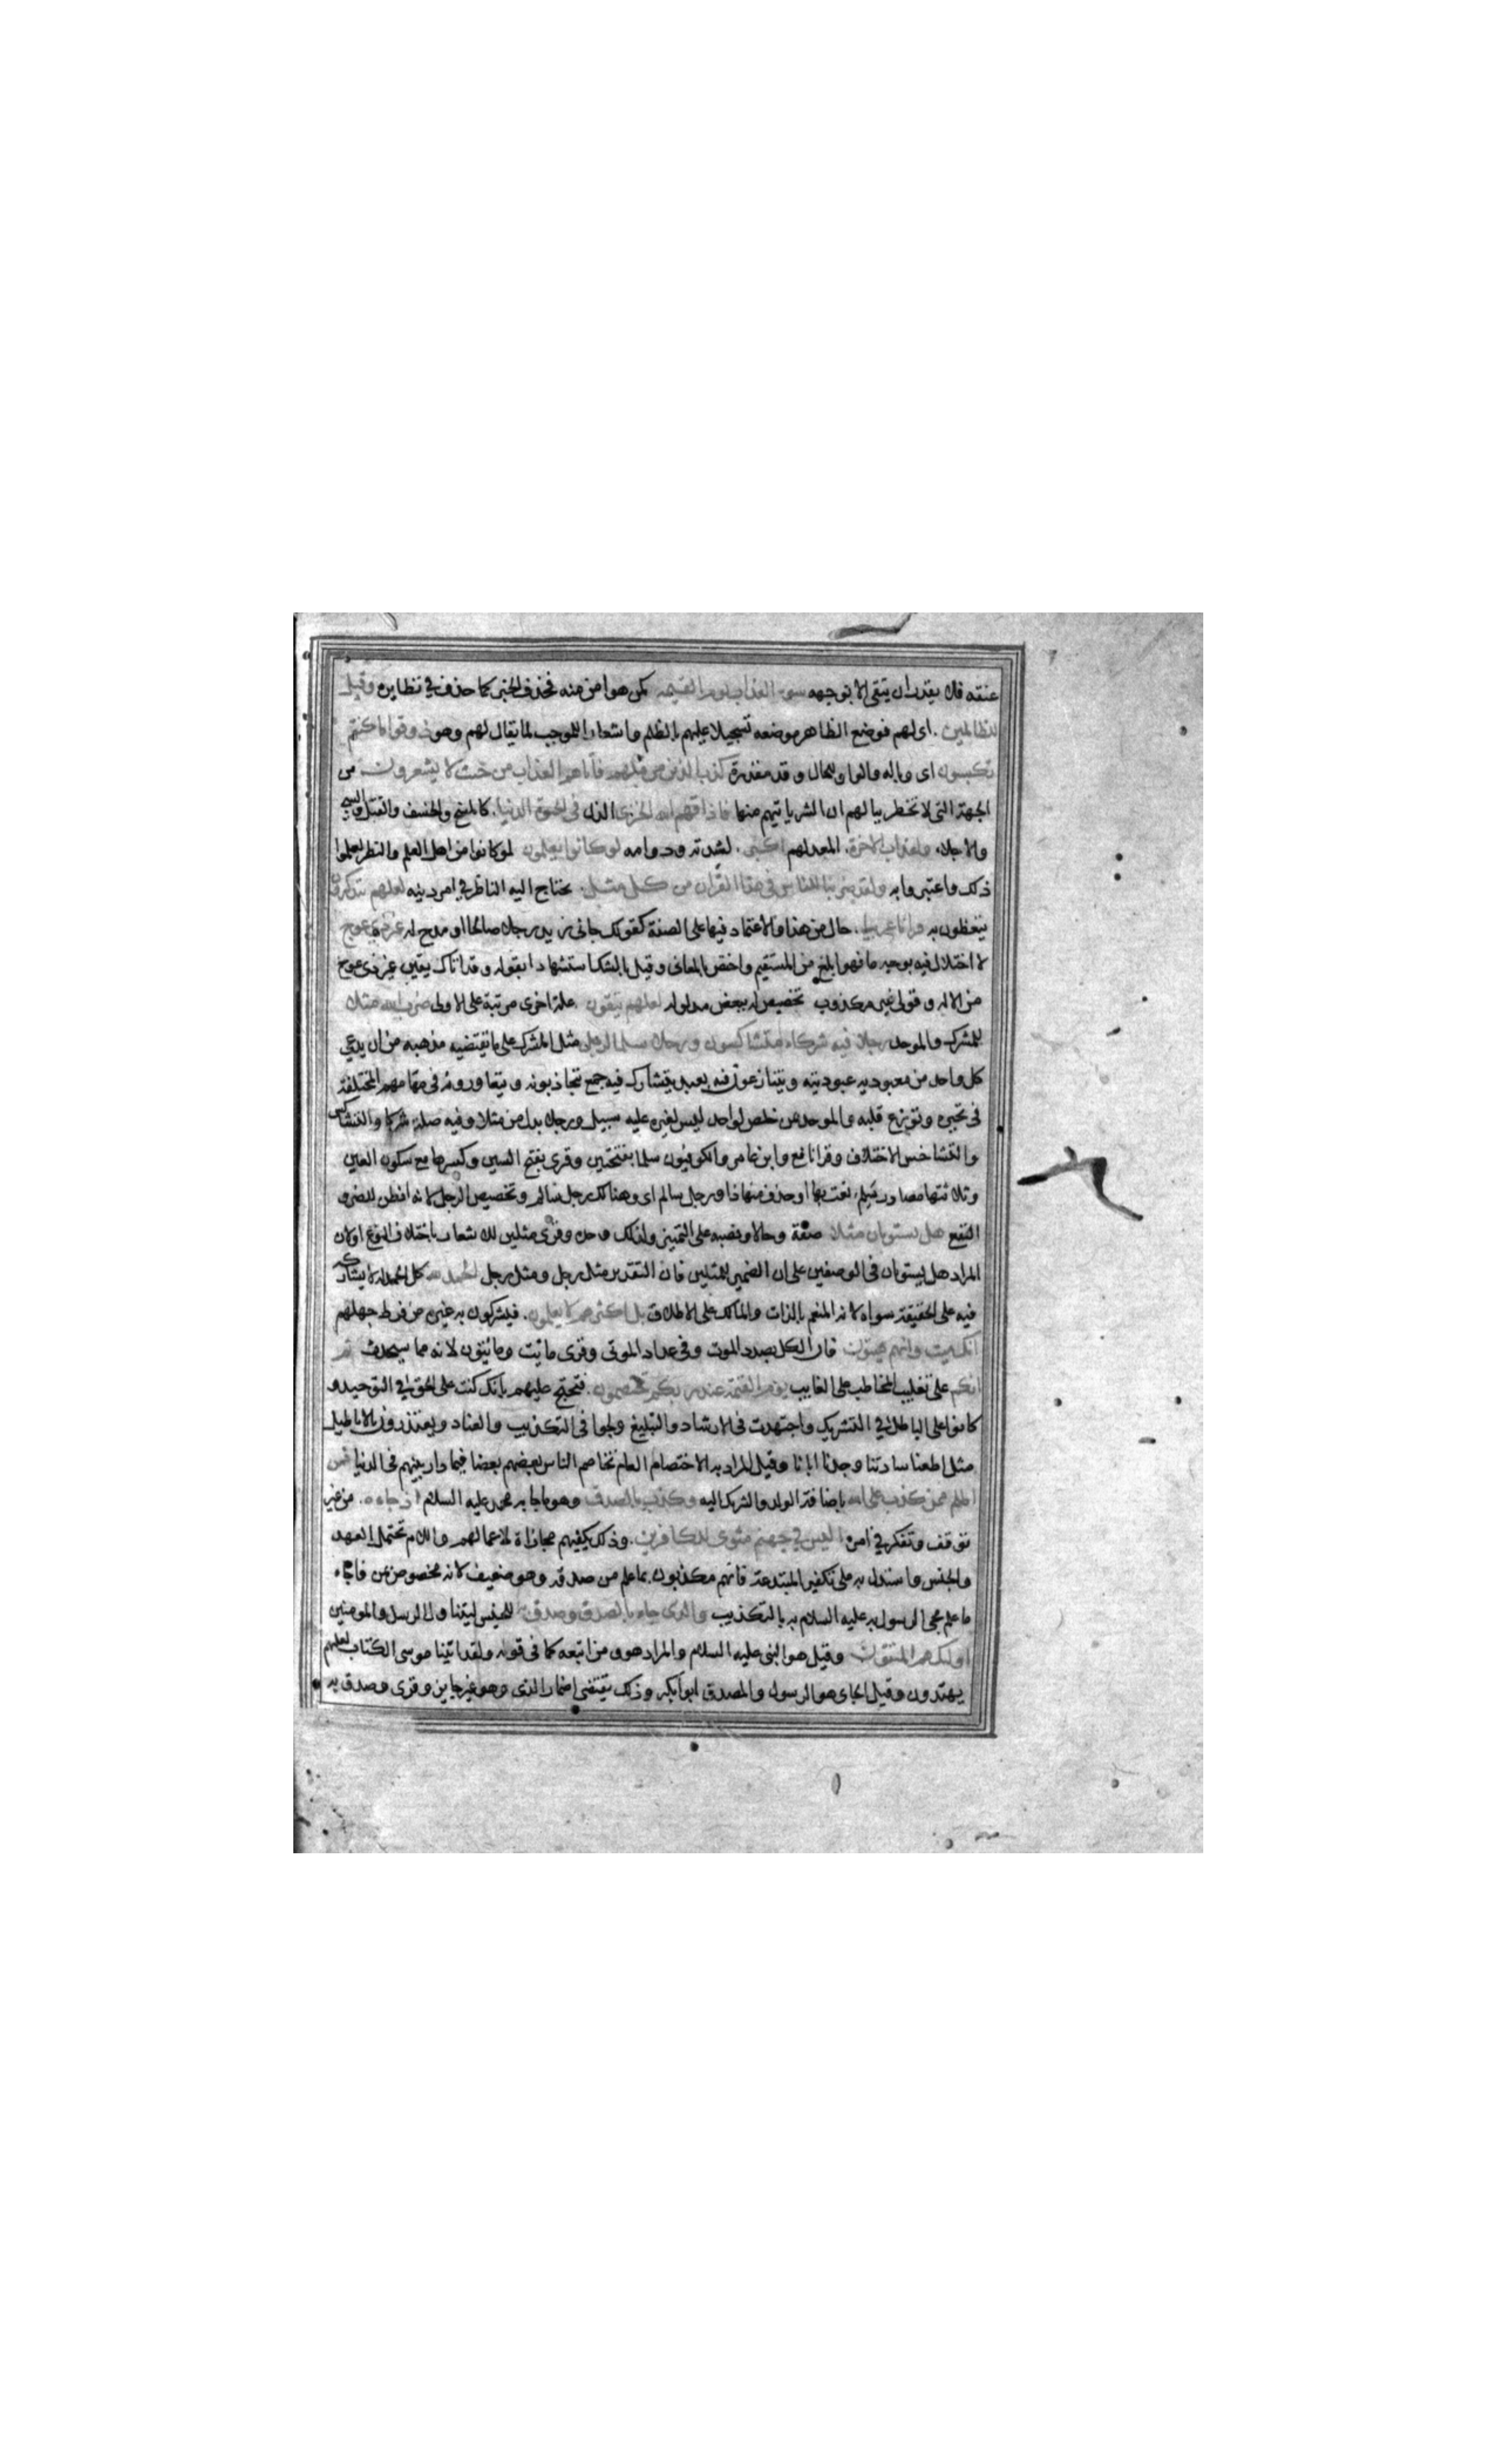 عنقه فلا يقدر ان يتقى الا بوجهه سوء العذاب يوم القيمه كمن هوا من منه فحذف الخبر كما حذف فى نظايره وقيل
للظالمين . اى لهم فوضع الظاهر موضعه تسجيلا عليهم بالظلم واشعارا للموجب لما يقال لهم وهو ذوقوا ما كنتم
تكسبون اى وباله والواو للحال وقد مقدرة كذب الذين من قبلهم فاتاهم العذاب من حيث لا يشعرون من
الجهة التى لا تخطر ببالهم ان الشر ياتيهم منها فاذاقهم الله الخزى الذل فى الحيوة الدنيا . كالمسخ والخسف والقتل والسبى
والاجلاء ولعذاب الاخرة . المعد لهم اكبر . لشدته ودوامه لو كانوا يعلمون لو كانوا من اهل العلم والنظر لعلموا
ذلك واعتبروا به ولقد ضربنا للناس فى هذا القرآن من كل مثل . يحتاج اليه الناظر فى امر دينه لعلهم يتذكرون
يتعظون به قرانا عربيا . حال من هذا والاعتماد فيها على الصفة كقولك جانى زيد رجلا صالحا او مدح له غير ذى عوج
لا اختلال فيه بوجه ما فهو ابلغ من المستقيم واخص بالمعانى وقيل بالشك استشهادا بقوله وقد اتاك يقين غير ذى عوج
من الاله وقول غير مكذوب تخصيص له ببعض مدلوله لعلهم يتقون . علة اخرى مرتبة على الاولى ضرب الله مثلا
للمشرك والموحد رجلا فيه شركاء متشاكسون ورجلا سلما لرجل مثل المشرك على ما تقتضيه مذهبه من ان يدعى
كل واحد من معبوديه عبوديته ويتنازعون فيه بعبد يتشارك فيه جمع يتجاذبونه ويتعاورونه فى مهامهم المختلفة
فى تحيره وتوزع قلبه والموحد من خلص لواحد ليس لغيره عليه سبيل ورجلا بدل من مثلا وفيه صلة شركا والتشاكس
والتشاخس الاختلاف وقرا نافع وابن عامر والكوفيون سلما بفتحتين وقرى بفتح السين وكسرها مع سكون العين
وثلاثتها مصادر سلم نعت بها او حذف منها ذا ورجل سالم اى وهناك رجل سالم وتخصيص الرجل لانه افطن للضر و
النفع هل يستويان مثلا صفة وحالا ونصبه على التمييز ولذلك وحد وقرى مثلين للاشعار باختلاف النوع او لان
المراد هل يستويان فى الوصفين على ان الضمير للمثلين فان التقدير مثل رجل ومثل رجل الحمد لله كل الحمد له لا يشاركه
فيه على الحقيقة سواه لانه المنعم بالذات والمالك على الاطلاق بل اكثرهم لا يعلمون . فيشركون به غيره من فرط جهلهم
انك ميت وانهم ميتون فان الكل بصدد الموت وفى عداد الموتى وقرى مائت ومائتون لانه مما سيحدث ثم
انكم على تغليب المخاطب على الغايب يوم القيمة عند ربكم تختصمون . فتحتج عليهم بانك كنت على الحق فى التوحيد و
كانوا على الباطل فى التشريك واجتهدت فى الارشاد والتبليغ ولجوا فى التكذيب والعناد ويعتذرون بالاباطيل
مثل اطعنا سادتنا وجدنا اباءنا وقيل المراد به الاختصام العام تخاصم الناس بعضهم بعضا فيما دار بينهم فى الدنيا فمن
اظلم ممن كذب على الله باضافة الولد والشريك اليه وكذب بالصدق وهو ما جا به محمد عليه السلام اذ جاءه . من غير
توقف وتفكر فى امره اليس فى جهنم مثوى للكافرين . وذلك يكفيهم مجازاة لاعمالهم واللام تحتمل العهد
والجنس واستدل به على تكفير المبتدعة فانهم مكذبون بما علم من صدقه وهو ضعيف لانه مخصوص بمن فاجاء
ما علم مجى الرسول به عليه السلام به بالتكذيب والذى جاء بالصدق وصدق به للجنس ليتناول الرسل والمومنين
اولئك هم المتقون وقيل هو النبى عليه السلام والمراد هو ومن اتبعه كما فى قوله ولقد اتينا موسى الكتاب لعلهم
يهتدون وقيل الجاى هو الرسول والمصدق ابو بكر وذلك يقتضى اضمار الذى وهو غير جايز وقرى وصدق به